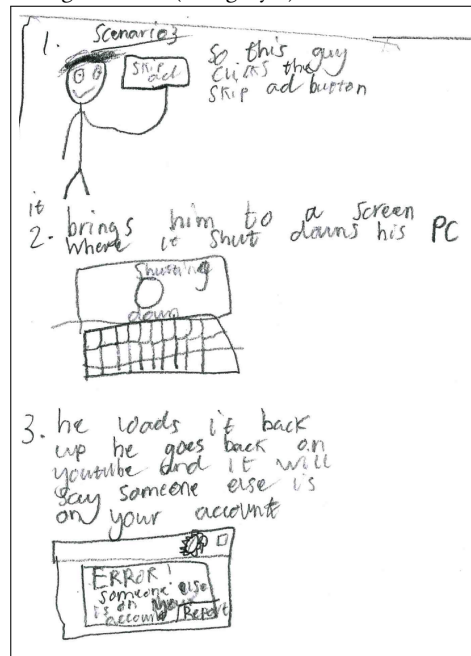 1. Scenario 3
Skip
ad
so this guy
clicks the
skip ad button
it
2. brings him to a screen
where it shut downs his PC
Shutting
down
3. he loads it back
up he goes back on
youtube and it will
say someone else is
on your account
ERROR!
someone else
is on your
account
Report